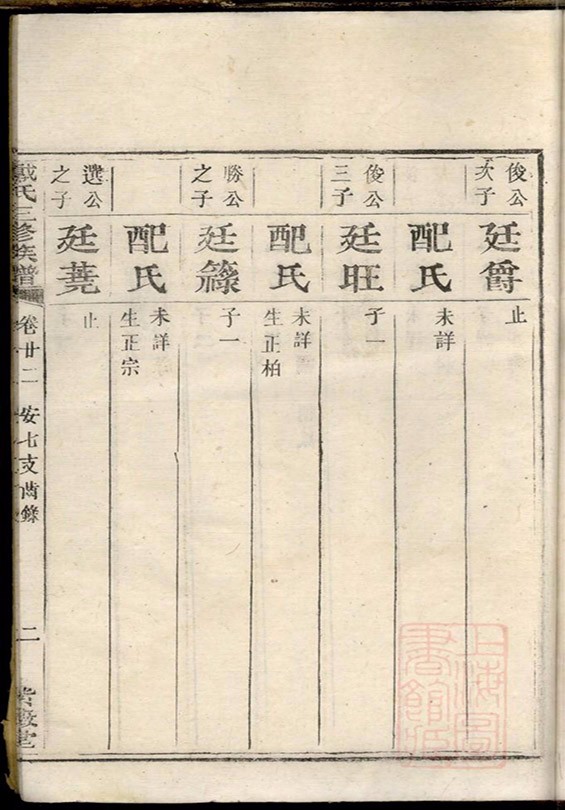 俊公
次子
廷爵
止
配氏
未詳
俊公
三子
廷旺
子一
配氏
未詳
生正柏
勝公
之子
廷籙
子一
配氏
未詳
生正宗
選公
之子
廷蕘
止
戴氏三修族譜
卷廿二
安七支齒錄
二
上海圖
書館藏